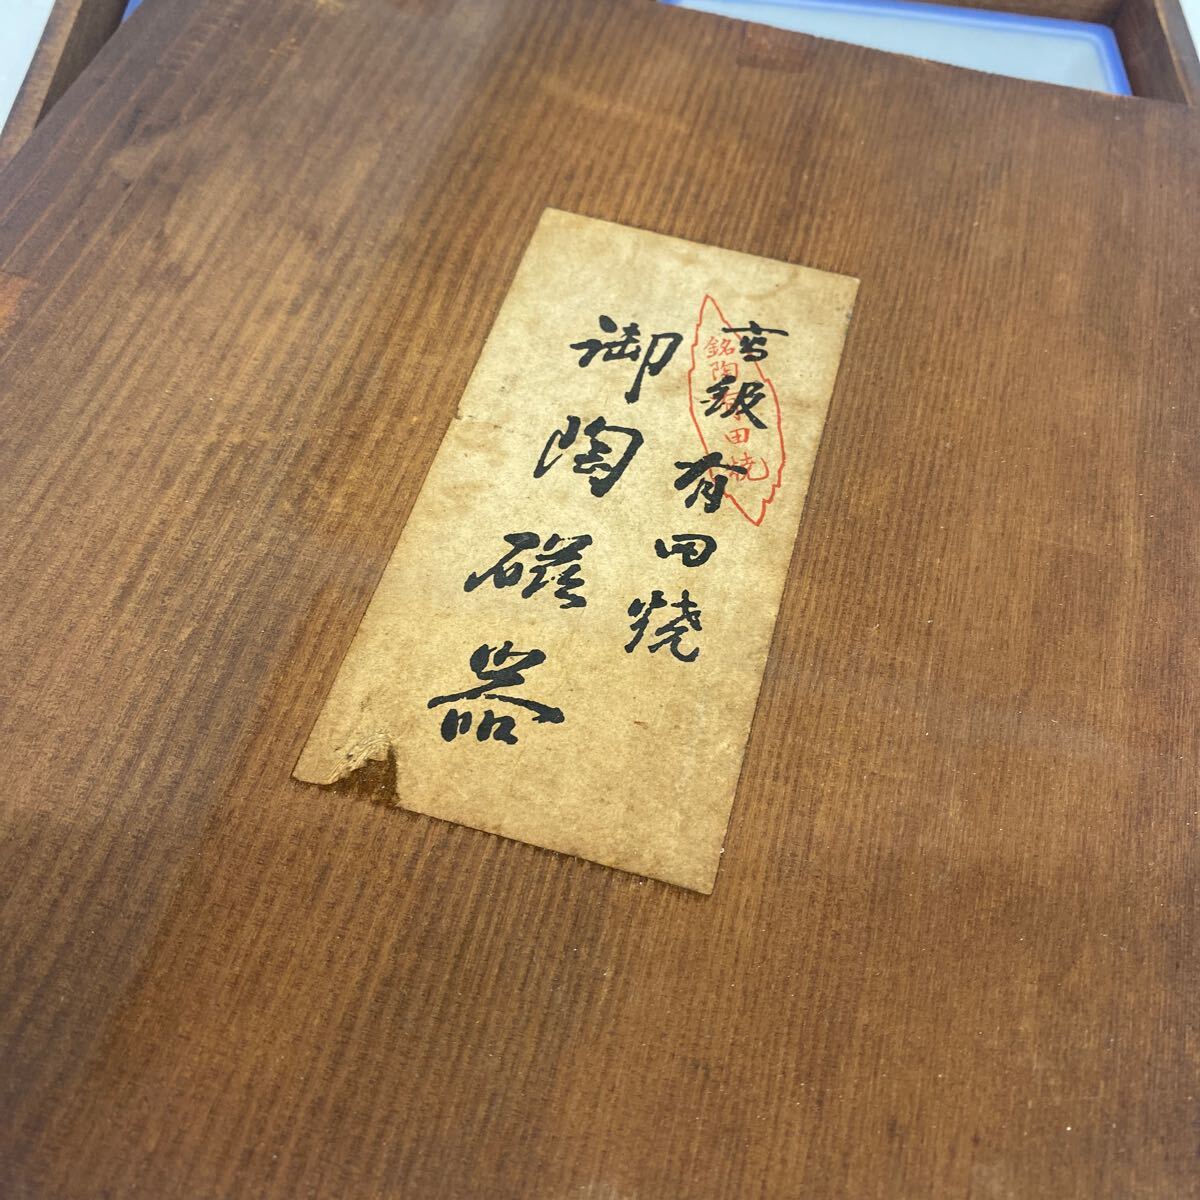 高級有田焼
御陶磁器
銘陶有田焼